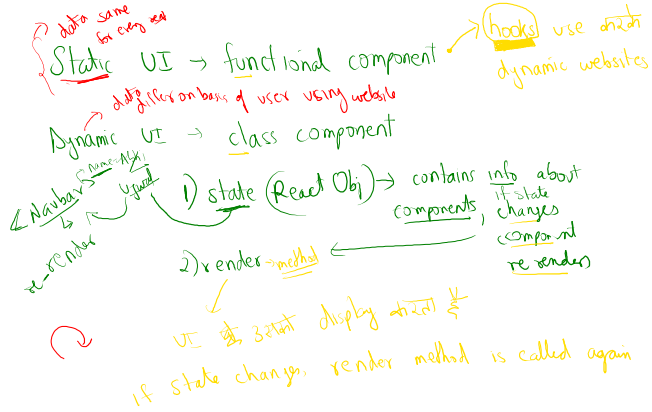 data same
for every user
Static UI → functional component → hooks use करके
dynamic websites
data differ on basis of user using website
Dynamic UI → class component
<Navbar name=
1) state (React Obj) → contains info about
components, if state
changes
component
re renders
re-render
2) render → method
UI display करता है
if state changes, render method is called again